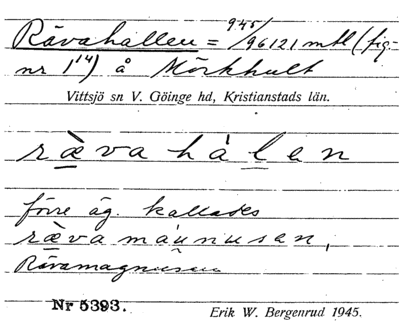 Rävahallen = 945/96121 mtl (fig-
nr 1¹⁴) å Mörkhult
Vittsjö sn V. Göinge hd, Kristianstads län.
ræ̀va hálen
förre äg. kallades
ræ̀vamánnusen,
Rävamagnusen
Nr 5393.
Erik W. Bergenrud 1945.